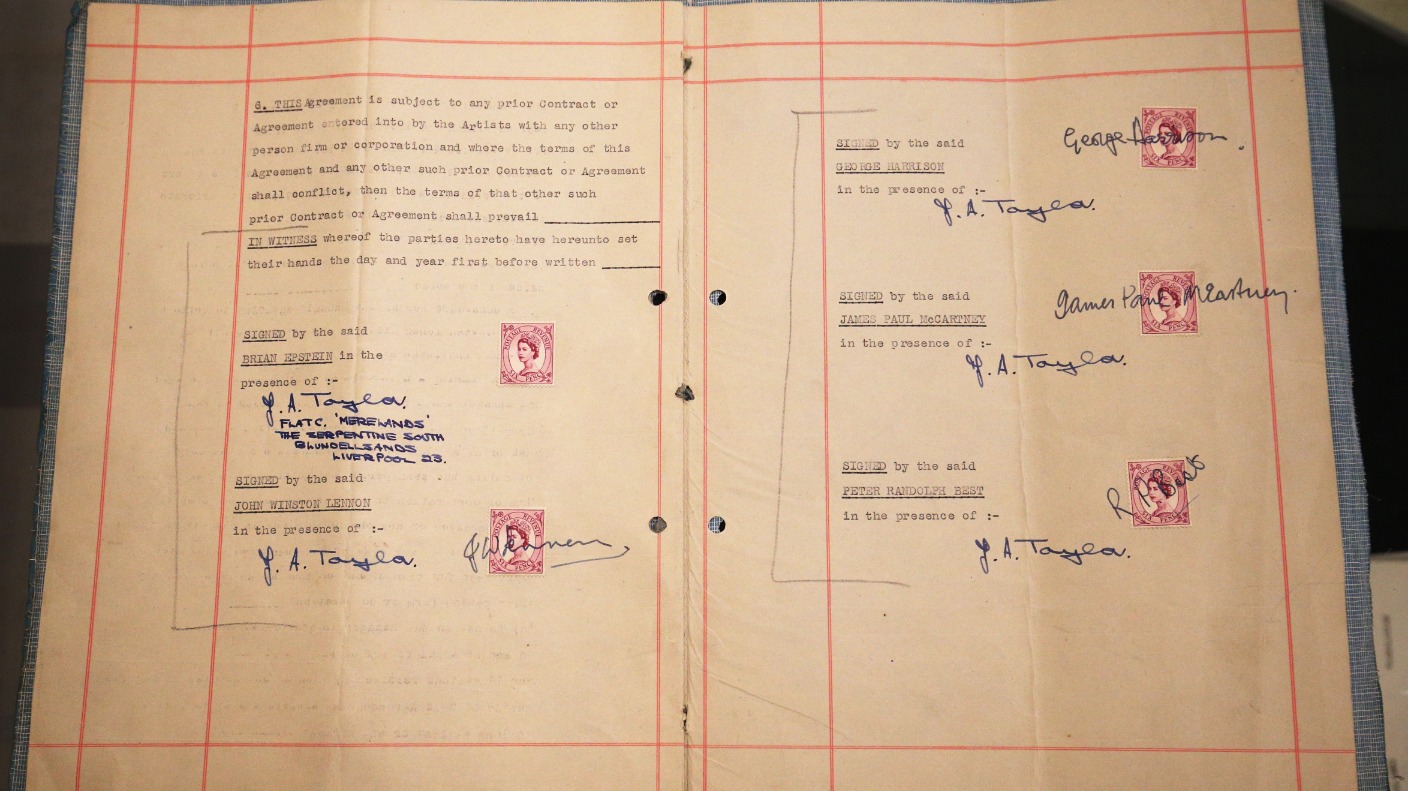 6. THIS Agreement is subject to any prior Contract or
Agreement entered into by the Artists with any other
person firm or corporation and where the terms of this
Agreement and any other such prior Contract or Agreement
shall conflict, then the terms of that other such
prior Contract or Agreement shall prevail
IN WITNESS whereof the parties hereto have hereunto set
their hands the day and year first before written
SIGNED by the said
BRIAN EPSTEIN in the
presence of :-
POSTAGE REVENUE
SIX PENCE
J. A. Tayla.
FLAT C. 'MERELANDS'
THE SERPENTINE SOUTH
BLUNDELLSANDS
LIVERPOOL 23.
SIGNED by the said
JOHN WINSTON LENNON
in the presence of :-
J. A. Tayla.
J W Lennon
POSTAGE REVENUE
SIX PENCE
SIGNED by the said
GEORGE HARRISON
in the presence of :-
J. A. Tayla.
George Harrison.
POSTAGE REVENUE
SIX PENCE
SIGNED by the said
JAMES PAUL McCARTNEY
in the presence of :-
J. A. Tayla.
James Paul McCartney.
POSTAGE REVENUE
SIX PENCE
SIGNED by the said
PETER RANDOLPH BEST
in the presence of :-
J. A. Tayla.
R. P. Best
POSTAGE REVENUE
SIX PENCE